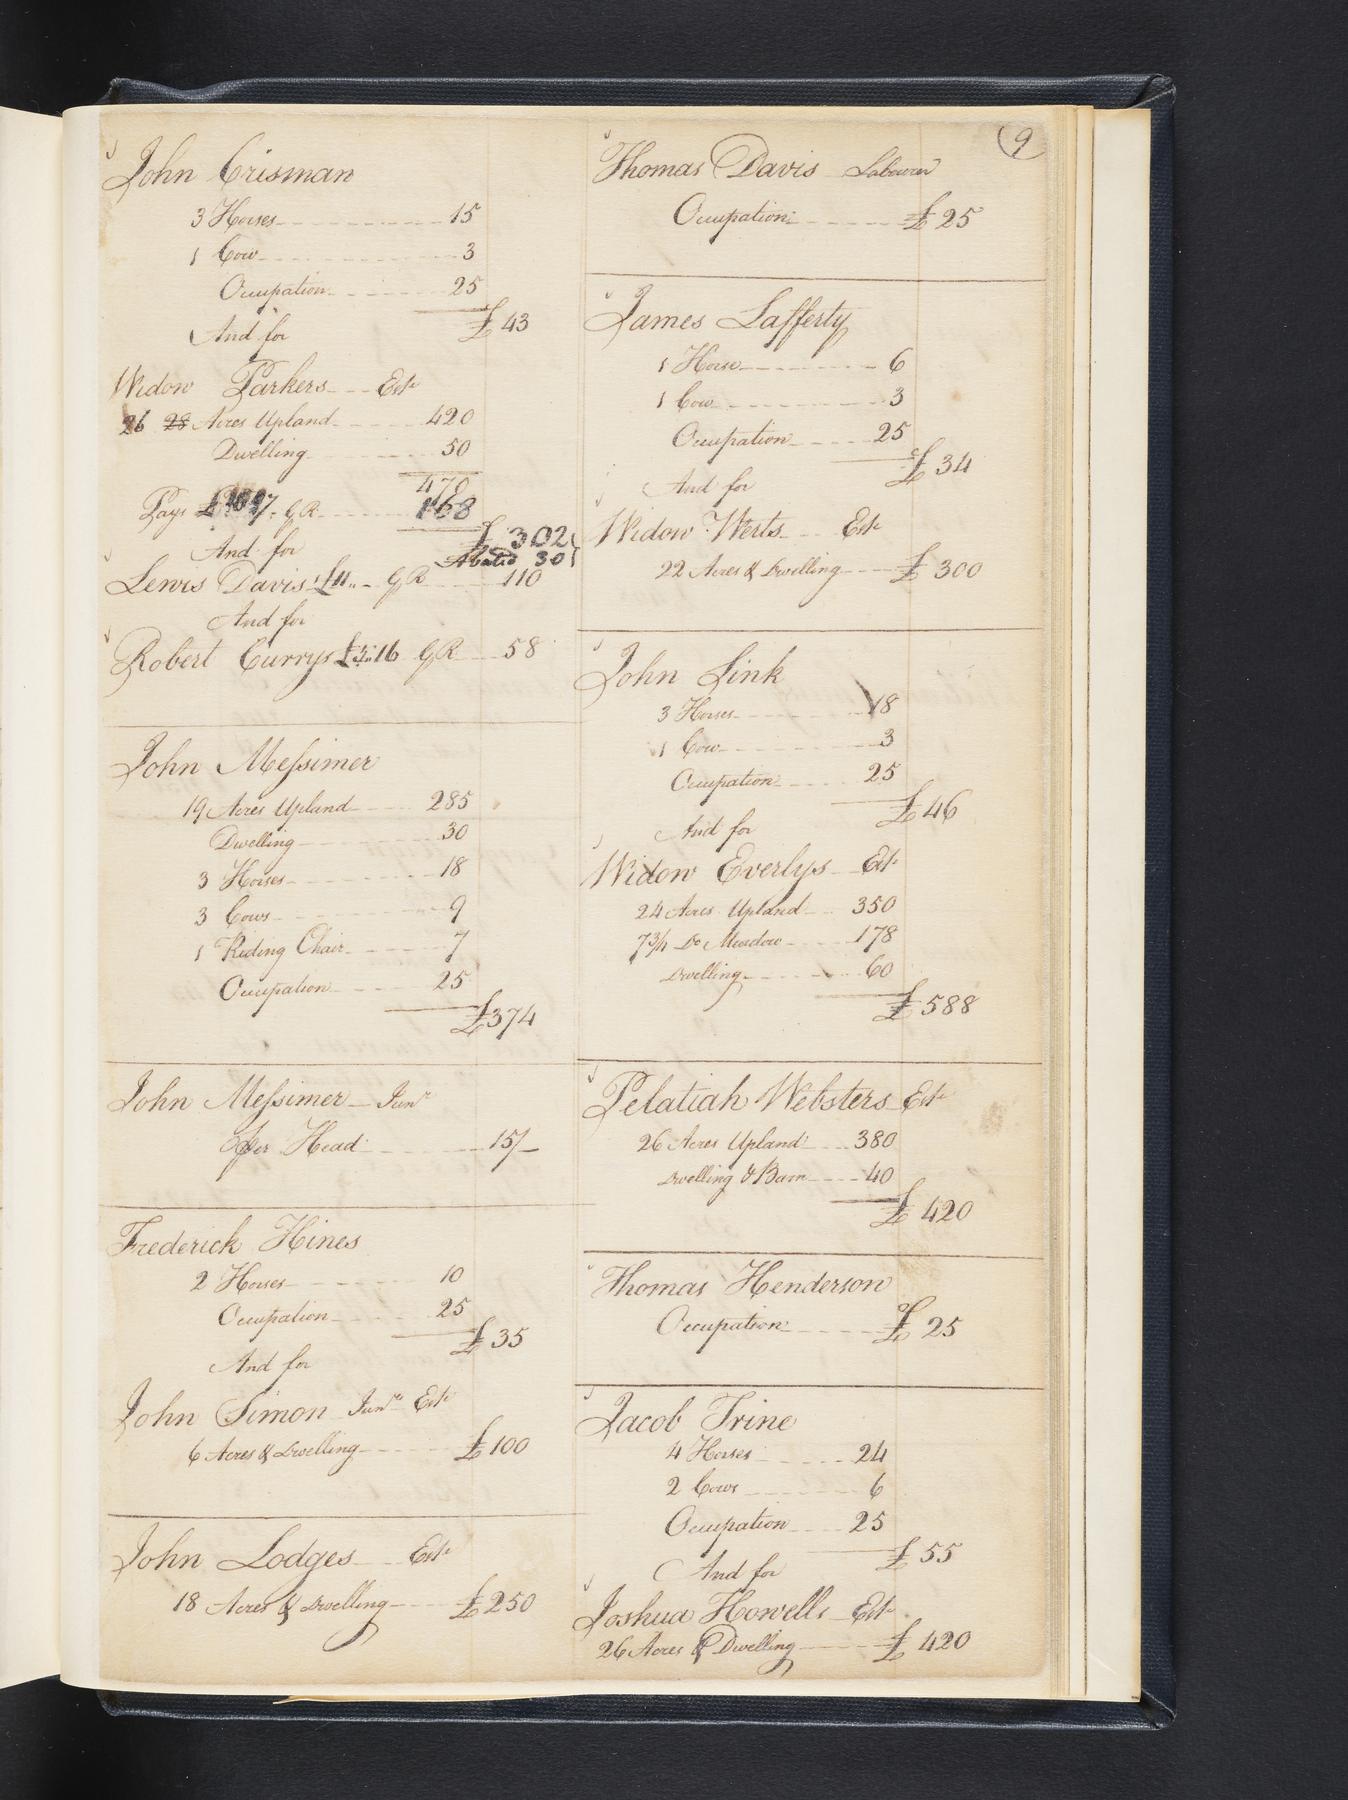 John Crisman
3 Horses 15
1 Cow 3
Occupation 25
£ 43
And for
Widow Parkers Este
26 28 Acres Upland 420
Dwelling 50
470
Pays GR 168
£ 302
And for
Abated 30
Lewis Davis's £11 GR 110
And for
Robert Currys £5.16 GR 58
John Messimer
19 Acres Upland 285
Dwelling 30
3 Horses 18
3 Cows 9
1 Riding Chair 7
Occupation 25
£374
John Messimer Junr
Per Head 15/-
Frederick Hines
2 Horses 10
Occupation 25
£ 35
And for
John Simon Junr Este
6 Acres & Dwelling £100
John Lodges Este
18 Acres & Dwelling £250
9
Thomas Davis Labourer
Occupation £25
James Lafferty
1 Horse 6
1 Cow 3
Occupation 25
£34
And for
Widow Werts Este
22 Acres & Dwelling £ 300
John Link
3 Horses 18
1 Cow 3
Occupation 25
£46
And for
Widow Everlys Este
24 Acres Upland 350
7 3/4 Do Meadow 178
Dwelling 60
£588
Pelatiah Websters Este
26 Acres Upland 380
Dwelling & Barn 40
£ 420
Thomas Henderson
Occupation £ 25
Jacob Trine
4 Horses 24
2 Cows 6
Occupation 25
£ 55
And for
Joshua Howells Este
26 Acres & Dwelling £ 420